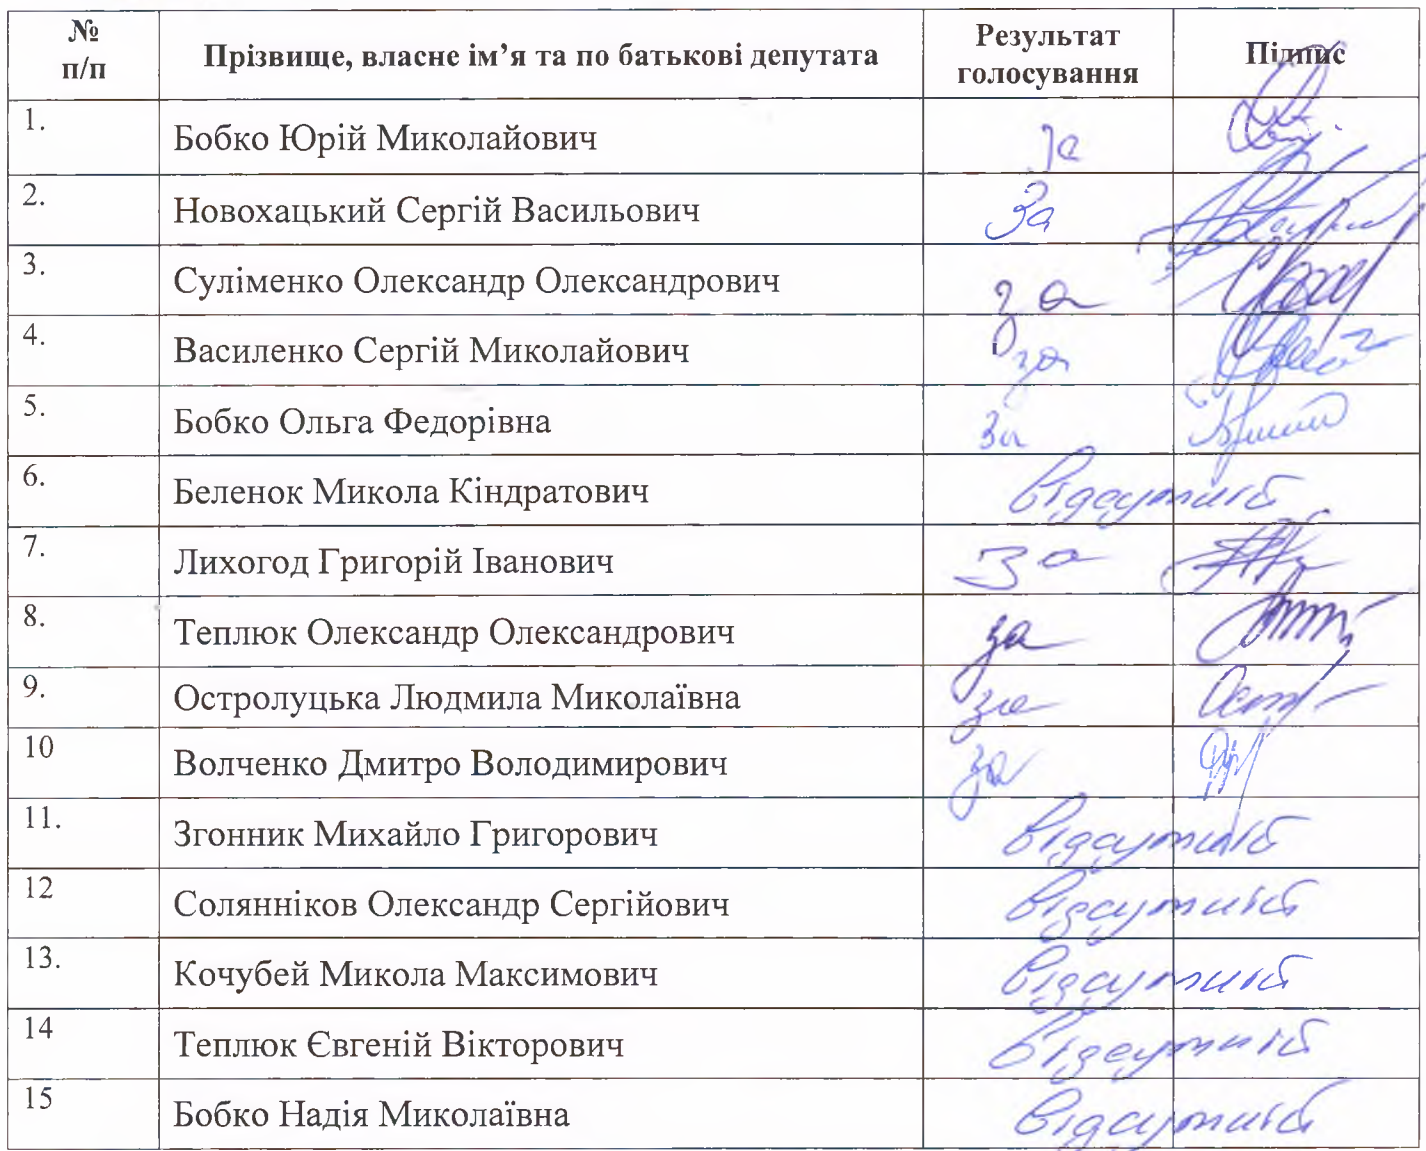 № п/п Прізвище, власне ім’я та по батькові депутата Результат голосування Підпис
1. Бобко Юрій Миколайович за
2. Новохацький Сергій Васильович За
3. Суліменко Олександр Олександрович за
4. Василенко Сергій Миколайович за
5. Бобко Ольга Федорівна За
6. Беленок Микола Кіндратович відсутній
7. Лихогод Григорій Іванович За
8. Теплюк Олександр Олександрович за
9. Остролуцька Людмила Миколаївна за
10 Волченко Дмитро Володимирович за
11. Згонник Михайло Григорович відсутній
12 Солянніков Олександр Сергійович відсутній
13. Кочубей Микола Максимович відсутній
14 Теплюк Євгеній Вікторович відсутній
15 Бобко Надія Миколаївна відсутній